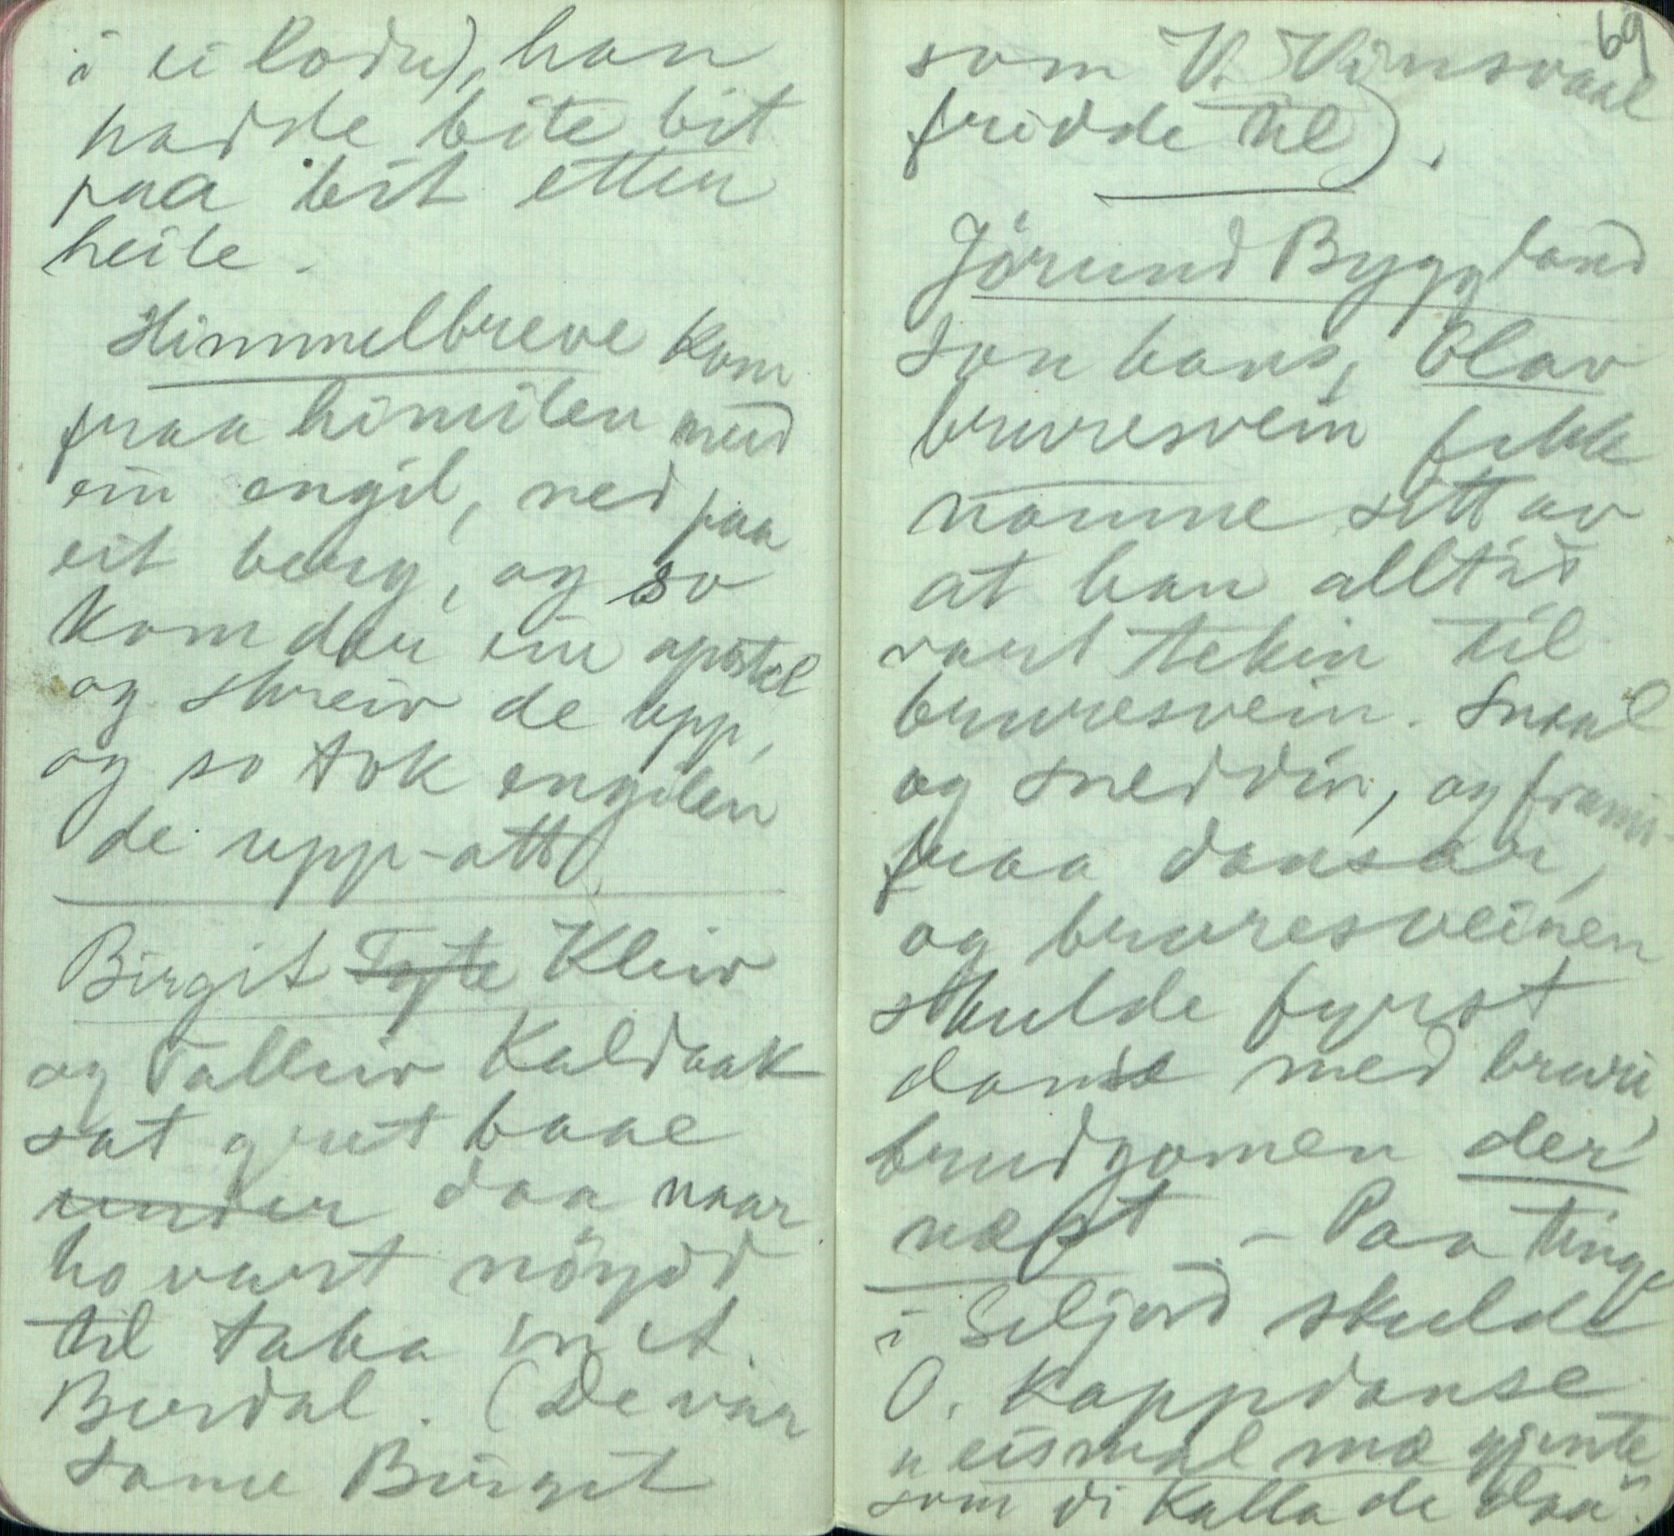 i ei lodu), han
hadde bite bit
paa bit etter
heile.
Himmelbreve kom
fraa himilen med
ein engil, ned paa
eit berg, og so
kom der ein apostel
og skreiv de upp,
og so tok engilen
de upp-att.
Birgit Tofte Kleiv
og Talleiv Kaldaak
sat gret baae
under daa naar
ho vart nöydd
til taka
Burdal. (De var
same Birgit
69
som V. Vinsvaal
fridde til).
Jörund Byggland
Son hans, Olav
bruresvein fekk
namne sitt av
at han alltid
vart tekin til
bruresvein. Snaal
og sneddin, og framifraa
dansar,
og bruresveinen
skulde fyrst
danse med bruri,
brudgomen der
næst. - Paa tinge
i Seljord skulde
O. kappdanse
"eismal mæ gjente"
som di kalla de daa.